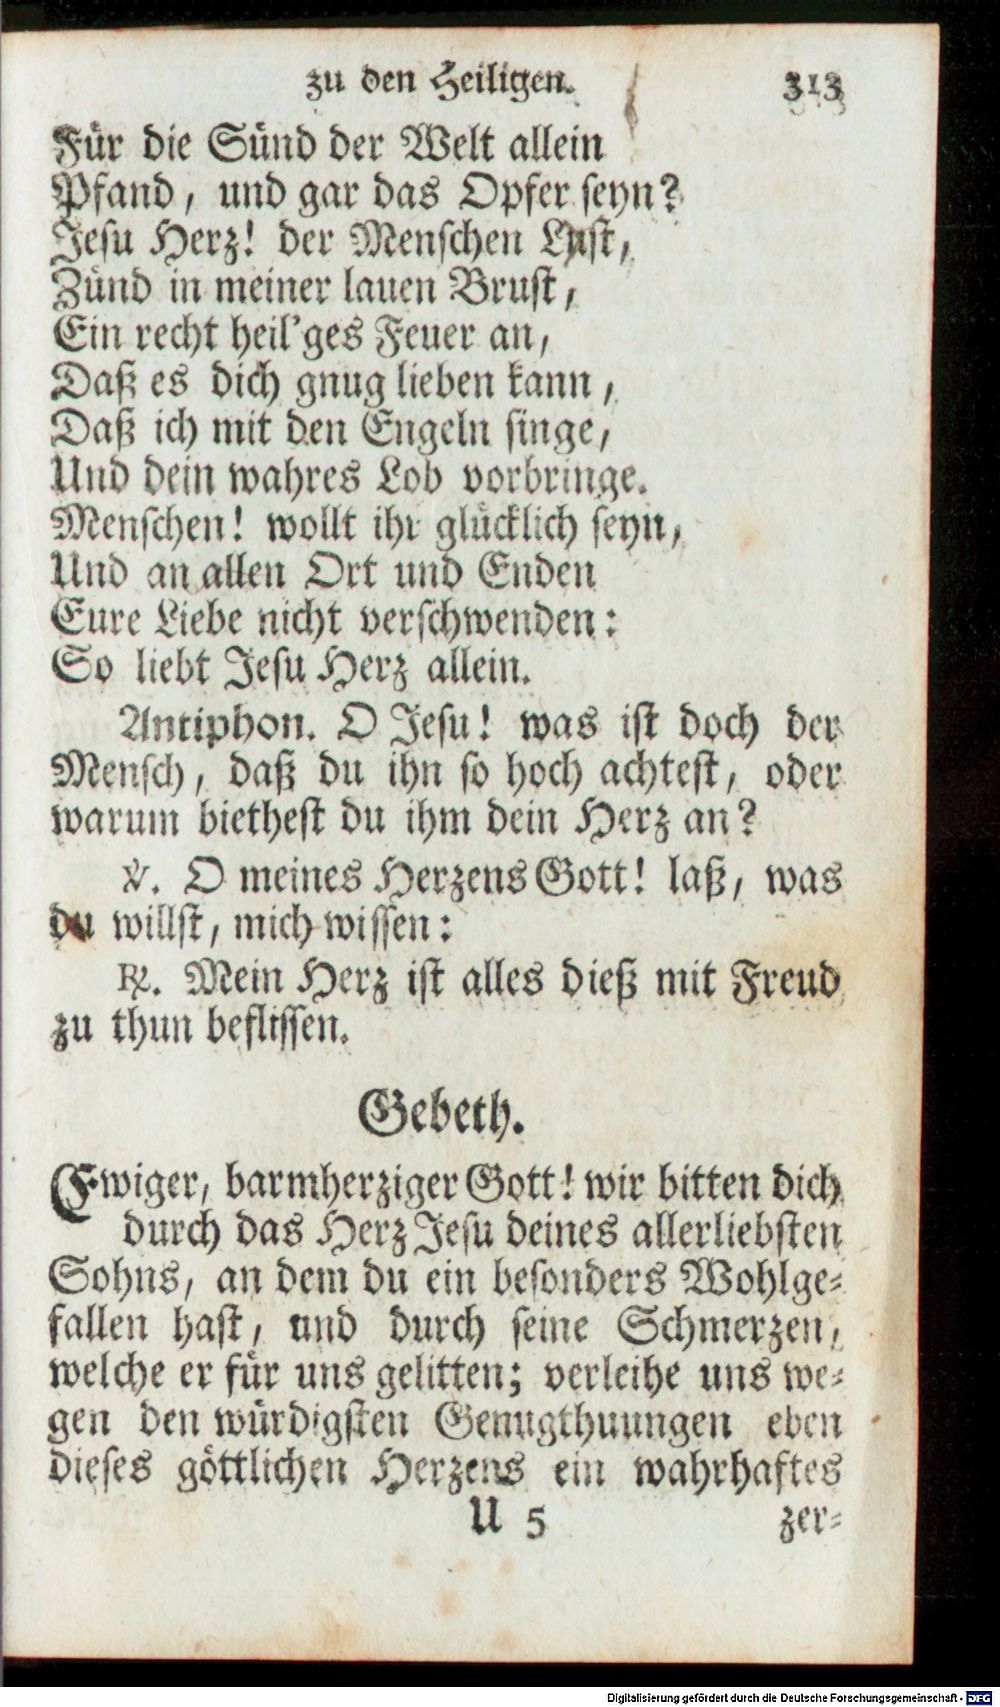 zu den Heiligen. 313
Für die Sünd der Welt allein
Pfand, und gar das Opfer seyn?
Jesu Herz! der Menschen Lust,
Zünd in meiner lauen Brust,
Ein recht heil'ges Feuer an,
Daß es dich gnug lieben kann,
Daß ich mit den Engeln singe,
Und dein wahres Lob vorbringe.
Menschen! wollt ihr glücklich seyn,
Und an allen Ort und Enden
Eure Liebe nicht verschwenden:
So liebt Jesu Herz allein.
Antiphon. O Jesu! was ist doch der
Mensch, daß du ihn so hoch achtest, oder
warum biethest du ihm dein Herz an?
℣. O meines Herzens Gott! laß, was
du willst, mich wissen:
℟. Mein Herz ist alles dieß mit Freud
zu thun beflissen.
Gebeth.
Ewiger, barmherziger Gott! wir bitten dich
durch das Herz Jesu deines allerliebsten
Sohns, an dem du ein besonders Wohlge-
fallen hast, und durch seine Schmerzen,
welche er für uns gelitten; verleihe uns we-
gen den würdigsten Genugthuungen eben
dieses göttlichen Herzens ein wahrhaftes
U 5 zer-
Digitalisierung gefördert durch die Deutsche Forschungsgemeinschaft - DFG